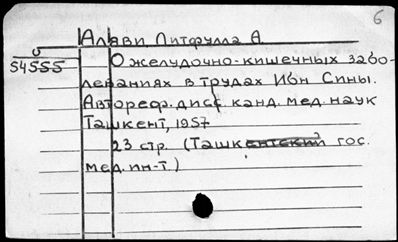 6
Аляви Литфулла А.
U
54555
О желудочно-кишечных забо-
леваниях в трудах Ибн Сины.
Автореф. дисс. канд. мед. наук
Ташкент, 1957
23 стр. (Ташкентский гос.
мед. ин-т)